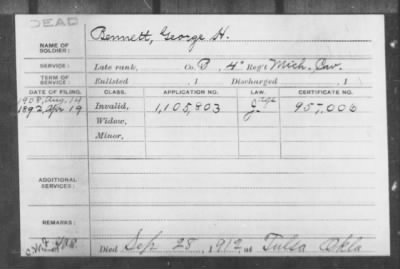 DEAD
NAME OF SOLDIER: Bennett, George H.
SERVICE: Late rank, Co. B, 4" Reg't Mich. Cav.
TERM OF SERVICE: Enlisted , 1 Discharged , 1
DATE OF FILING. CLASS. APPLICATION NO. LAW. CERTIFICATE NO.
1908, Aug. 14
1892, Apr 19 Invalid, 1,105,803 957,006
Widow,
Minor,
ADDITIONAL SERVICES:
REMARKS:
Died Sep 28, 1912, at Tulsa Okla